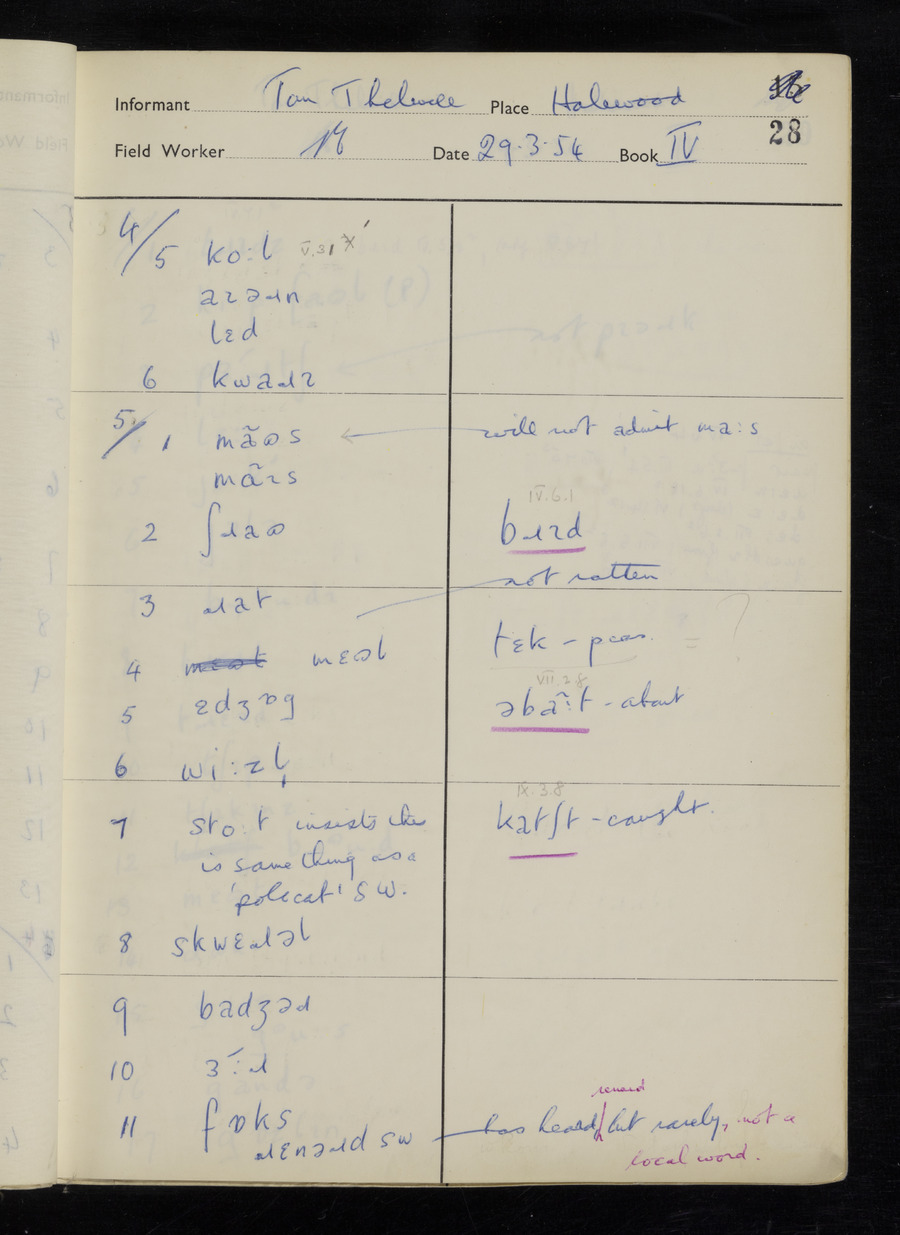 Informant Tom Thelwell Place Halewood
28
Field Worker Date 29.3.54 Book IV
4/5 ko:l V.3.1
lɛd
5/1 mãʊs will not admit ma:s
IV.6.1
2
not rotten
3 ɹat
tɛk – peas. = ?
4 mɛʊl
VII.2.8
5 ɛdʒɒg əbã:t - about
6 wi:zl̩
IX.3.8
7 sto:t insists this katʃt - caught.
is same thing as a
'polecat' SW.
8 skwɛɹəl
9 badʒəɹ
10
11 fɒks has heard renard but rarely, not a
ɹɛnəɹd SW local word.